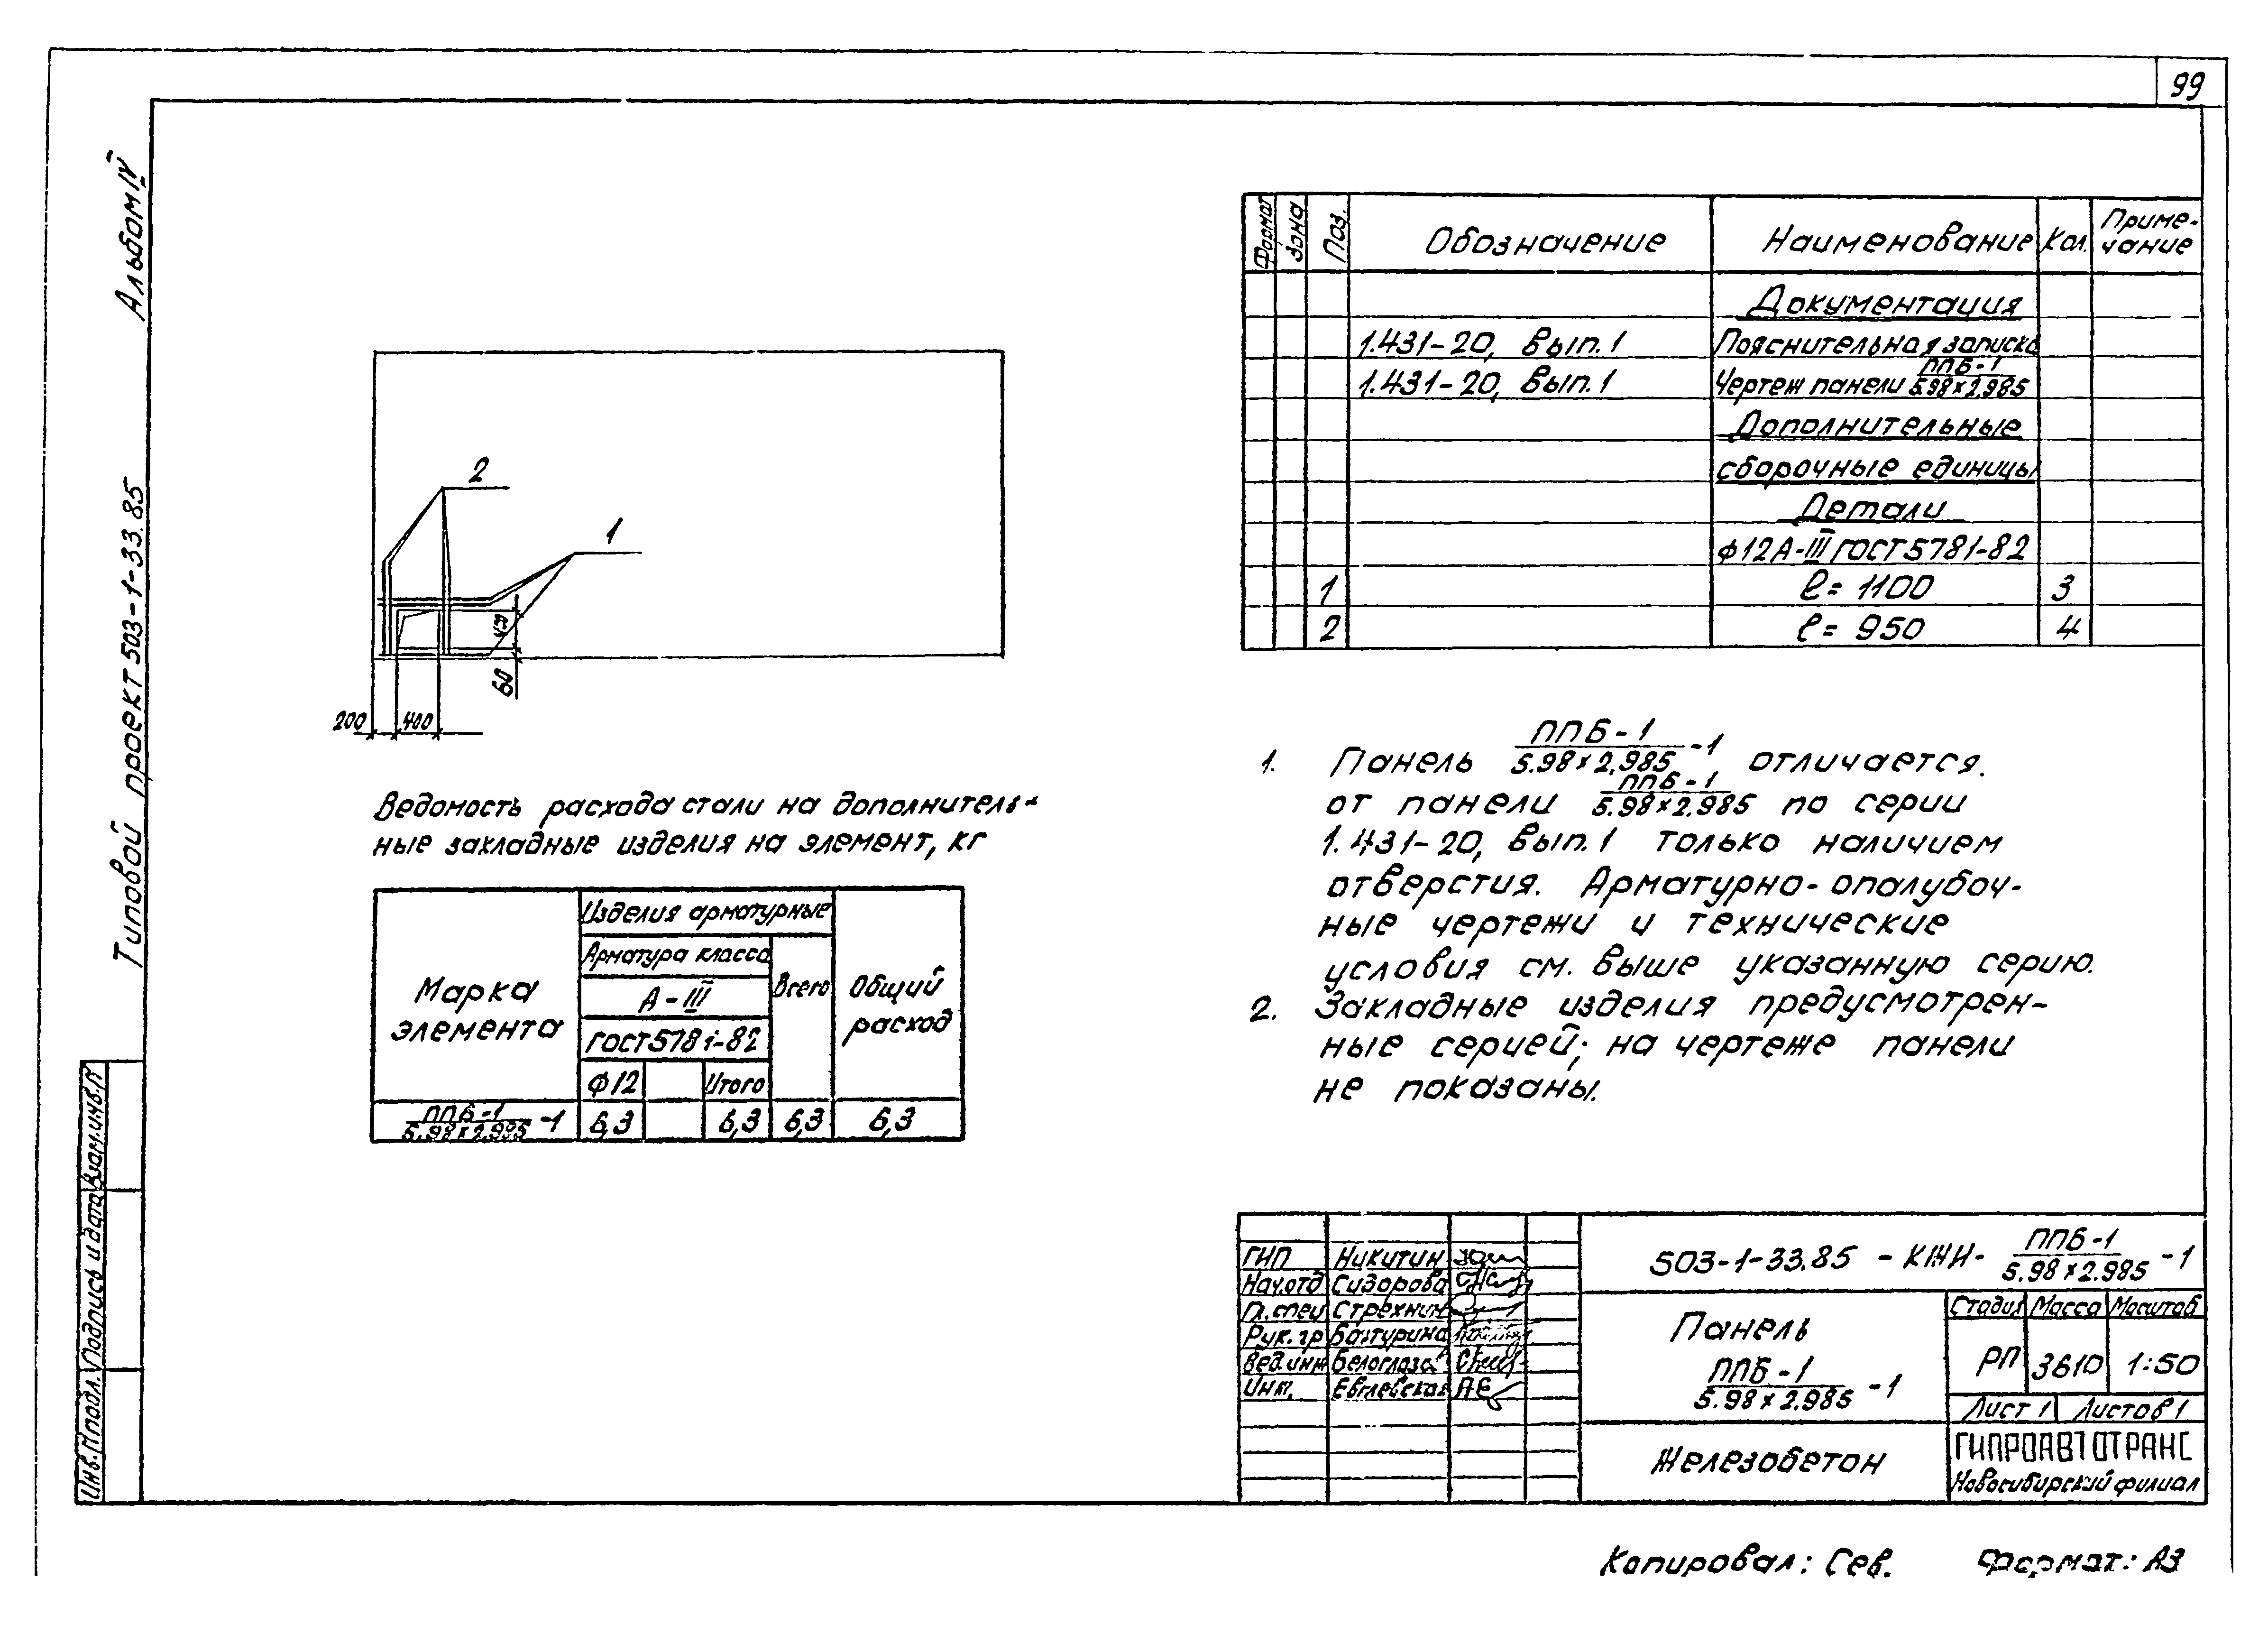 99
Альбом IV
Типовой проект 503-1-33.85
Взам.инв.N
Подпись и дата
Инв.Nподл.
2
1
60
200
400
Ведомость расхода стали на дополнитель-
ные закладные изделия на элемент, кг
Марка элемента
Изделия арматурные
Арматура класса
А-III
ГОСТ5781-82
Ф12
Итого
Всего
Общий расход
ППБ-1
5.98×2.985 -1
6,3
6,3
6,3
6,3
Формат
Зона
Поз.
Обозначение
Наименование
Кол.
Приме-
чание
Документация
1.431-20, Вып.1 Пояснительная записка
1.431-20, Вып.1 Чертеж панели ППБ-1
5.98×2.985
Дополнительные
сборочные единицы
Детали
ф12А-III ГОСТ5781-82
1 ℓ= 1100 3
2 ℓ= 950 4
1. Панель ППБ-1
5.98×2.985 -1 отличается.
от панели ППБ-1
5.98×2.985 по серии
1.431-20, Вып.1 только наличием
отверстия. Арматурно-опалубоч-
ные чертежи и технические
условия см. выше указанную серию.
2. Закладные изделия предусмотрен-
ные серией; на чертеже панели
не показаны.
ГИП Никитин
Нач.отд Сидорова
Гл.спец Стрехнин
Рук.гр Бахтурина
Вед.инж Белоглаза
Инж.
503-1-33.85 - КЖИ- ППБ-1
5.98×2.985 -1
Панель
ППБ-1
5.98×2.985 -1
Стадия Масса Масштаб
РП 3610 1:50
Лист 1 Листов 1
Железобетон
ГИПРОАВТОТРАНС
Новосибирский филиал
Копировал: Сев. Формат: А3